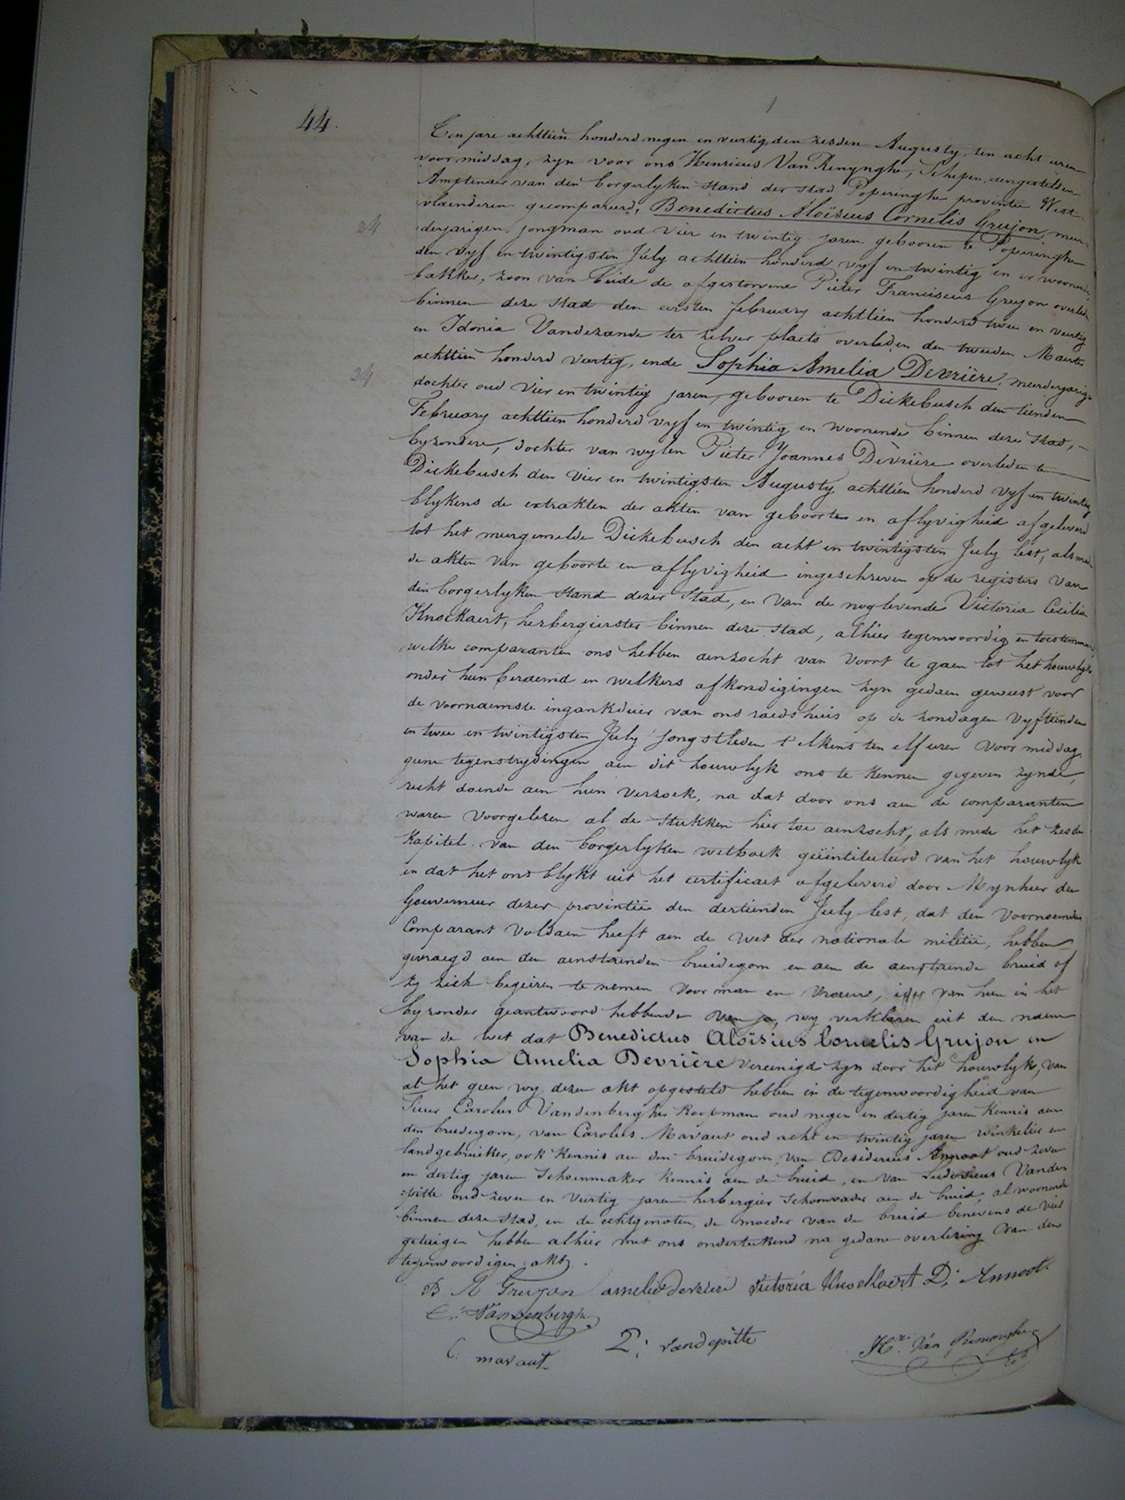 44.
1
Ten jare achttien honderd negen en veertig den zesden Augusty, ten acht uren
voormiddag, zyn voor ons Henricus Van Renynghe, Schepen, aengestelden
Amptenaer van den borgerlyken stand der stad Poperinghe provintie West
vlaenderen gecompareerd, Benedictus Aloïsius Cornelis Grujon, meer-
24
derjarigen jongman oud vier en twintig jaren gebooren te Poperinghe
den vyf en twintigsten July achttien honderd vyf en twintig en er woonende
bakker, zoon van beide de afgestorvene Pieter Franciscus Grujon overleden
binnen deze stad den eersten february achttien honderd twee en veertig
en Idonia Vandezande ter zelver plaets overleden den tweeden Maerte
achttien honderd veertig, ende Sophia Amelia Devrière, meerderjarige
24
dochter oud vier en twintig jaren, gebooren te Dickebusch den tienden
February achttien honderd vyf en twintig en woonende binnen deze stad,
byzondere, dochter van wylen Pieter Joannes Devrière overleden te
Dickebusch den vier en twintigsten Augusty achttien honderd vyf en twintig
blykens de extrakten der akten van geboorte en aflyvigheid afgeleverd
tot het meergemelde Dickebusch den acht en twintigsten July lest, als mede
de akten van geboorte en aflyvigheid ingeschreven op de registers van
den borgerlyken stand dezer stad, en van de nog levende Victoria Cecilia
Knockaert, herbergierster binnen deze stad, alhier tegenwoordig en toestemmende
welke comparanten ons hebben aenzocht van voort te gaen tot het houwelyk
onder hun beraemd en welkers afkondigingen zyn gedaen geweest voor
de voornaemste ingankdeur van ons raedshuis op de zondagen vyftienden
en twee en twintigsten July jongstleden t'elkens ten elf uren voormiddag
geene tegenstrydingen aen dit houwelyk ons te kennen gegeven zynde,
recht doende aen hun verzoek, na dat door ons aen de comparanten
waren voorgelezen al de stukken hier toe aenzocht, als mede het zesde
kapitel van den borgerlyken wetboek geïntituleerd van het houwelyk
en dat het ons blykt uit het certificaet afgeleverd door Mynheer den
Gouverneur dezer provintie den dertienden July lest, dat den voornoemden
Comparant voldaen heeft aen de wet der nationale militie, hebben
gevraegd aen den aenstaenden bruidegom en aen de aenstaende bruid of
zy zich begeiren te nemen voor man en vrouw, van hun in het
byzonder geantwoord hebbende van ja, wy verklaren uit den naem
van de wet dat Benedictus Aloïsius Cornelis Grujon en
Sophia Amelia Devrière vereenigd zyn door het houwelyk, van
al het geen wy dezen akt opgesteld hebben in de tegenwoordigheid van
Sieur Carolus Vandenberghe koopman oud negen en dertig jaren kennis aen
den bruidegom, van Carolus Maraut oud acht en twintig jaren winkelier en
landgebruiker, ook kennis aen den bruidegom, van Desiderius Annoot oud zeven
en dertig jaren schoenmaker kennis aen de bruid, en van Vanden
pitte oud zeven en veertig jaren herbergier schoonvader aen de bruid, al woonende
binnen deze stad, en de echtgenoten, de moeder van de bruid benevens de vier
getuigen hebben alhier met ons onderteekend na gedane overlezing van den
tegenwoordigen akt.
B A Grujon amelie devriere victoria knockaert D. Annoot.
C. Vandenberghe
C. maraut
vandepitte
Hri. Van Renynghe